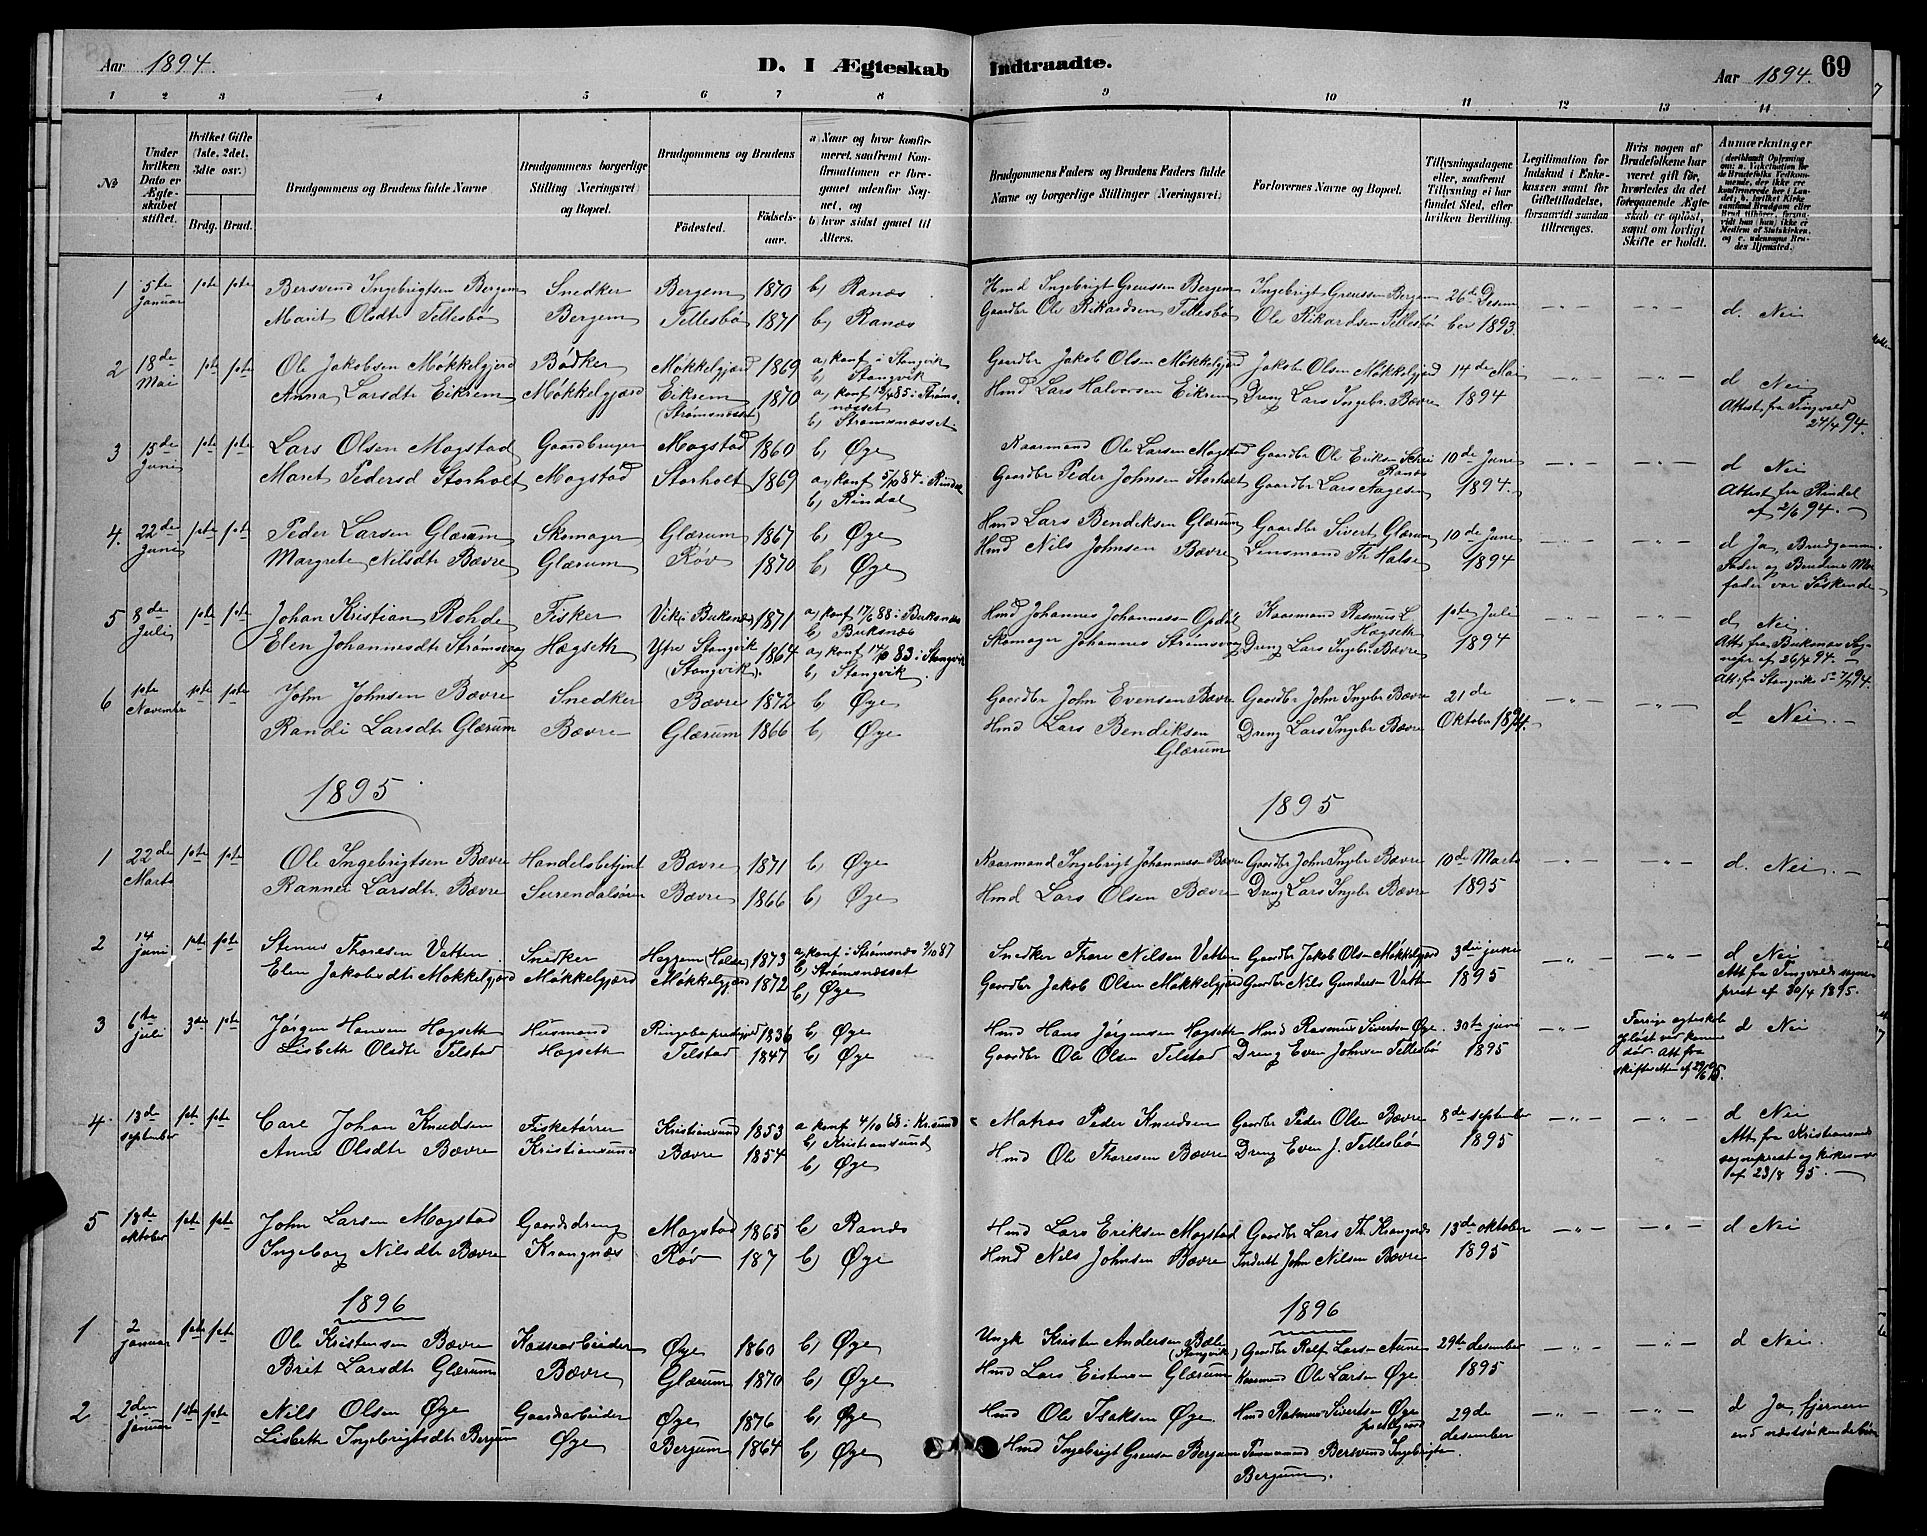 Aar 1894.
D. I Ægteskab Indtraadte.
Aar 1894. 69
1 2 3 4 5 6 7 8 9 10 11 12 13 14
No
Under hvilken Dato er Ægteskabet stiftet.
Hvilket Gifte (1ste, 2det, 3die osv.)
Brdg. Brud.
Brudgommens og Brudens fulde Navne
Brudgommens borgerlige Stilling (Næringsvei) og Bopæl.
Brudgommens og Brudens
Fødested. Fødselsaar.
a) Naar og hvor konfirmeret, saafremt Konfirmationen er foregaaet udenfor Sognet, og
b) hvor sidst gaaet til Alters.
Brudgommens Faders og Brudens Faders fulde Navne og borgerlige Stillinger (Næringsvei)
Forlovernes Navne og Bopæl.
Tillysningsdagene eller, saafremt Tillysning ei har fundet Sted, efter hvilken Bevilling.
Legitimation for Indskud i Enkekassen samt for Giftetilladelse, forsaavidt saadan tiltrænges.
Hvis nogen af Brudefolkene har været gift før, hvorledes da det foregaaende Ægteskab er opløst, samt om lovligt Skifte er holdt.
Anmærkninger
1 5te Januar 1ste 1ste Bersvend Ingebrigtsen Bergem Snedker Bergem 1870 b) Ranæs Hmd Ingebrigt Greussen Bergem Ingebrigt Greussen Bergem 26de Desem
Marit Olsdtr Tellesbø Bergem Tellesbø 1871 b) Ranæs Gaardbr Ole Rikardsen Tellesbø Ole Rikardsen Tellesbø ber 1893. d. Nei
2 18de Mai 1ste 1ste Ole Jakobsen Møkkelgjerd Bødker Møkkelgjerd 1869 a) konf i Stangvik b) Stangvik Gaardbr Jakob Olsen Møkkelgjerd Jakob Olsen Møkkelgjerd 14de Mai
Anna Larsdtr Eikrem Møkkelgjerd Eikrem (Strømsnesset) 1870 a) konf 12/4 85 i Strømsnæsset b) Strømsnæsset Hmd Lars Halvorsen Eikrem Dreng Lars Ingebr. Bævre 1894 d Nei Attest fra Tingvold 24/4 94.
3 15de Juni 1ste 1ste Lars Olsen Mogstad Gaardbruger Mogstad 1860 b) Øye Kaarmand Ole Larsen Mogstad Gaardbr Ole Eriksen Schei Ranæs 10de Juni
Maret Pedersd Storholt Mogstad Storholt 1869 a) konf 5/10 84 i Rindal b) Rindal Gaardbr Peder Johnsen Storholt Gaardbr Lars Aagesen 1894. d Nei Attest fra Rindal af 2/6 94.
4. 22de Juni 1ste 1ste Peder Larsen Glærum Skomager Glærum 1867 b) Øye Hmd Lars Bendiksen Glærum Gaardbr Sivert Glærum 10de Juni
Margrete Nilsdtr Bævre Glærum Røv 1870 b) Øye Hmd Nils Johnsen Bævre Lensmand Th Halse 1894 d Ja, Brudgommens Fader og Brudens Morfader var Søskende
5 8de Juli 1ste 1ste Johan Kristian Rohde Fisker Vik (Buksnæs) 1871 a) konf 17/6 88 i Buksnæs b) Buksnæs Hmd Johannes Johannessen Opdøl Kaarmand Rasmus L Høgseth 1ste Juli
Elen Johannesdtr Strømsvaag Høgseth Ytre Stangvik (Stangvik) 1864 a) konf 14/10 83 i Stangvik b) Stangvik Skomager Johannes Strømsvaag Dreng Lars Ingebr. Bævre 1894 d, Nei Att. fra Buksnæs Sognepr af 26/4 94. Att fra Stangvik 5 7/7 94.
6 1ste November 1ste 1ste John Johnsen Bævre Snedker Bævre 1872 b) Øye Gaardbr John Evensen Bævre Gaardbr John Ingebr Bævre 21de
Randi Larsdtr Glærum Bævre Glærum 1866 b) Øye Hmd Lars Bendiksen Glærum Dreng Lars Ingebr Bævre Oktober 1894. d Nei.
1895 1895
1 22de Marts 1ste 1ste Ole Ingebrigtsen Bævre Handelsbetjent Bævre 1871 b) Øye Kaarmand Ingebrigt Johannessen Bævre Gaardbr John Ingebr Bævre 10de Marts
Rannei Larsdtr. Bævre Surendalsøren Bævre 1866 b) Øye Hmd Lars Olsen Bævre Dreng Lars Ingebr Bævre 1895 d. Nei.
2 14 juni 1ste 1ste Stener Thoresen Vatten Snedker Heggem (Halse) 1873 a) konf i Strømsnæs 2/10 87 b) Strømsnæsset Snedker Thore Nilsen Vatten Gaardbr Jakob Olsen Møkkelgjerd 3die juni
Elen Jakobsdtr Møkkelgjerd Møkkelgjerd Møkkelgjerd 1872 b) Øye Gaardbr Jakob Olsen Møkkelgjerd Gaardbr Nils Gundersen Vatten 1895 d Nei Att fra Tingvolds sogneprest af 30/4 1895.
3 6te juli 3die 1ste Jørgen Hansen Høgseth Husmand Ringebo prestegj 1836 b) Øye Hmd Hans Jørgensen Høgseth Hmd Rasmus Sivertsen Øye. 30te juni Forrige egteskab opløst ved konens død. Att fra skifteretten af 29/6 95.
Lisbeth Olsdtr Telstad Høgseth Telstad 1847 b) Øye Gaardbr Ole Olsen Telstad Dreng Even Johnsen Tellesbø 1895 d Nei
4. 13de september 1ste 1ste Carl Johan Knudsen Fisketørrer Kristiansund 1853 a konf 4/10 68 i Krsund b) Kristiansund Matros Peder Knudsen Gaardbr Peder Olsen Bævre 8de september
Anne Olsdtr Bævre Kristiansund Bævre 1854 b) Øye Hmd Ole Thoresen Bævre Dreng Even J. Tellesbø 1895 d Nei Att fra Kristiansunds sogneprest og kirkeverge af 23/8 95.
5 18de oktober 1ste 1ste John Larsen Mogstad Gaardsdreng Mogstad 1865 b) Ranæs Hmd Lars Eriksen Mogstad Gaardbr Lars Th. Krangnæs 13de oktober
Ingeborg Nilsdtr Bævre Krangnæs Røv 187 b) Øye Hmd Nils Johnsen Bævre Inderst John Nilsen Bævre 1895 d Nei
1896 1896
1 2 januar 1ste 1ste Ole Kristensen Bævre Kassearbeider Øye 1860 b) Øye Ungk Kristen Andersen Bæle (Stangvik) Gaardbr Rolf Larsen Aune 29de desember
Brit Larsdtr Glærum Bævre Glærum 1870 b) Øye Hmd Lars Eistensen Glærum Kaarmand Ole Larsen Øye 1895 d Nei
2 2den januar 1ste 1ste Nils Olsen Øye Gaardarbeider Øye 1876 b) Øye Hmd Ole Isaksen Øye. Hmd Rasmus Sivertsen Øye prestegaard 29de
Lisbeth Ingebrigtsdtr Bergum Øye Bergum 1864 b) Øye Hmd Ingebrigt Greussen Bergum Tømmermand Bersvend Ingebrigtsen Bergum. desember. d Ja, fjernere end næstsøskendebørn